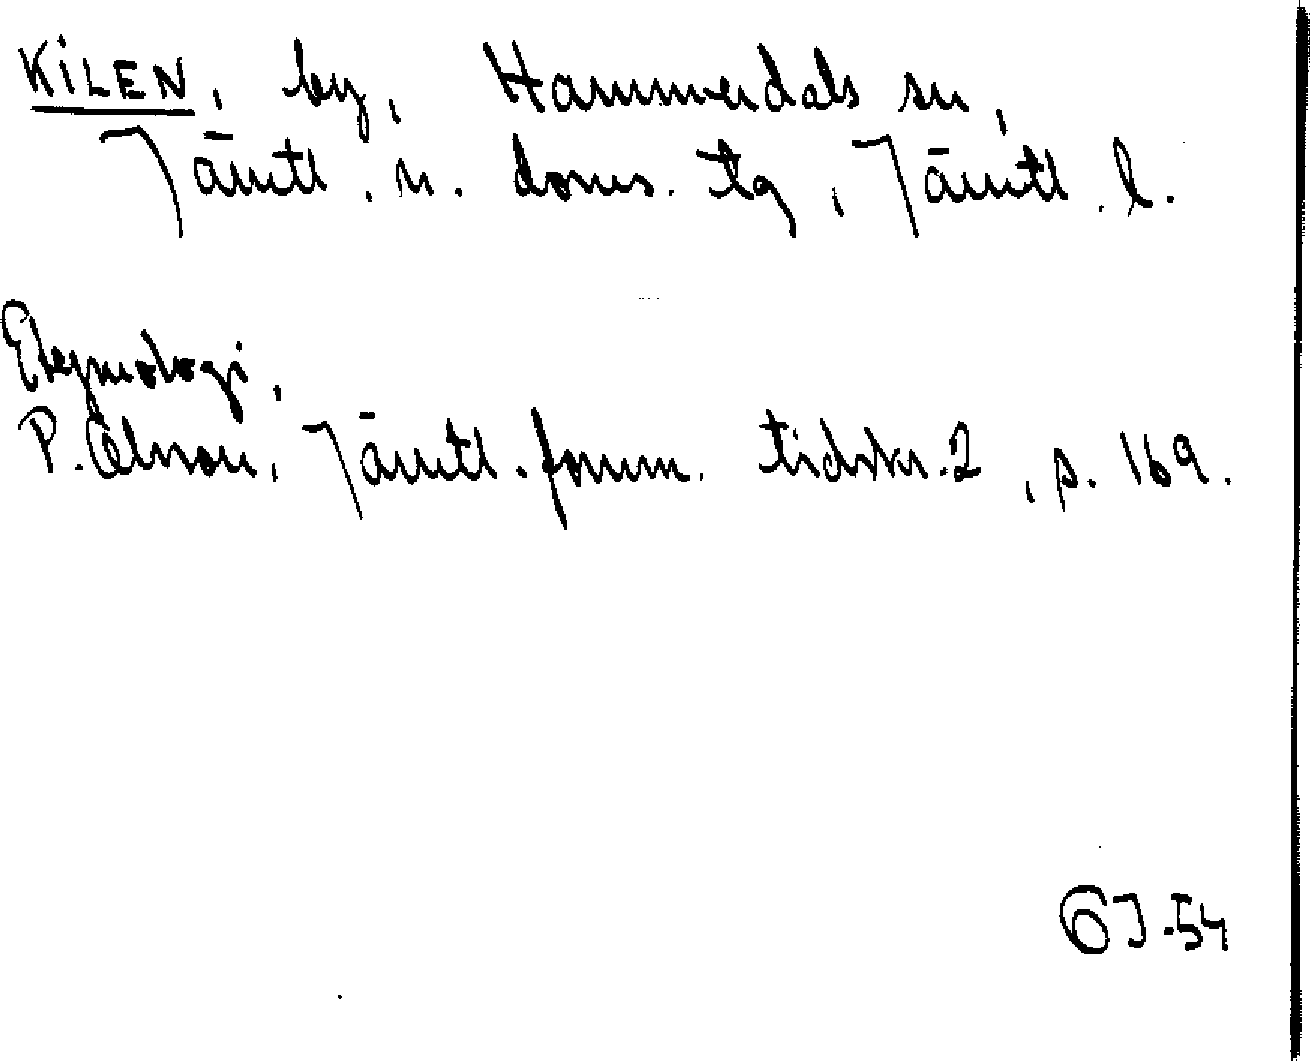 KILEN, by, Hammerdals sn,
Jämtl. n. doms. tg, Jämtl. l.
Etymologi,
P. Olsson, Jämtl. fornm. tidskr. 2, s. 169.
GJ.54